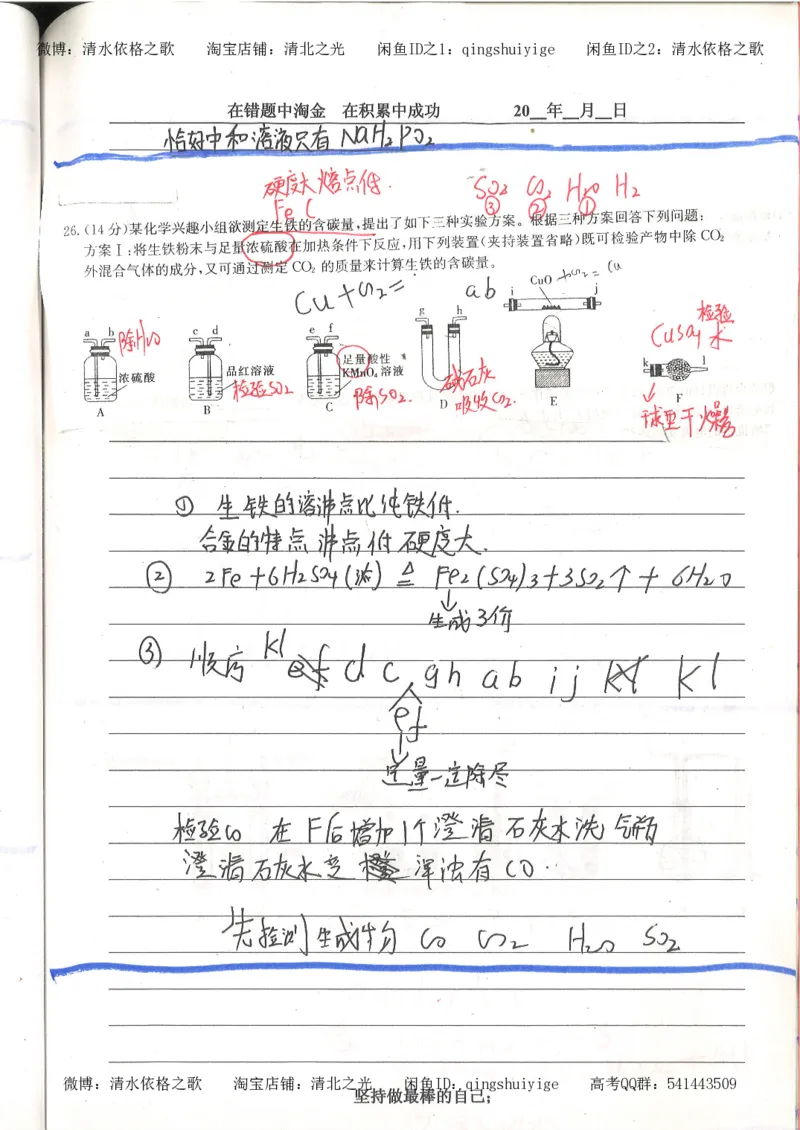 微博：清水依格之歌 淘宝店铺：清北之光 闲鱼ID之1：qingshuiyige 闲鱼ID之2：清水依格之歌
在错题中淘金 在积累中成功 20__年__月__日
恰好中和溶液只有 NaH₂PO₂
硬度大 熔点低. SO₂ CO₂ H₂O H₂
Fe C ③ ② ①
26.(14分)某化学兴趣小组欲测定生铁的含碳量,提出了如下三种实验方案。根据三种方案回答下列问题:
方案Ⅰ:将生铁粉末与足量浓硫酸在加热条件下反应,用下列装置(夹持装置省略)既可检验产物中除CO₂
外混合气体的成分,又可通过测定CO₂的质量来计算生铁的含碳量。
Cu+CO₂= ab CuO +CO₂= Cu
a b 除H₂O c d e f g h i j 检验
CuSO₄ 水
浓硫酸 品红溶液 足量酸性 KMnO₄溶液 碱石灰 k l
检验SO₂ 除SO₂. 吸收CO₂.
A B C D E F
球型干燥器
① 生铁的溶沸点比纯铁低.
合金的特点 沸点低 硬度大.
② 2Fe+6H₂SO₄(浓) ≜ Fe₂(SO₄)₃+3SO₂↑+6H₂O
生成3价
③ 顺序 kl ef d c, gh ab ij kl kl
ef
定量一定除尽
检验CO 在F后增加1个澄清石灰水洗气瓶
澄清石灰水变 浑浊有CO.
先检测生成物 CO CO₂ H₂O SO₂
微博：清水依格之歌 淘宝店铺：清北之光 闲鱼ID：qingshuiyige 高考QQ群：541443509
坚持做最棒的自己;